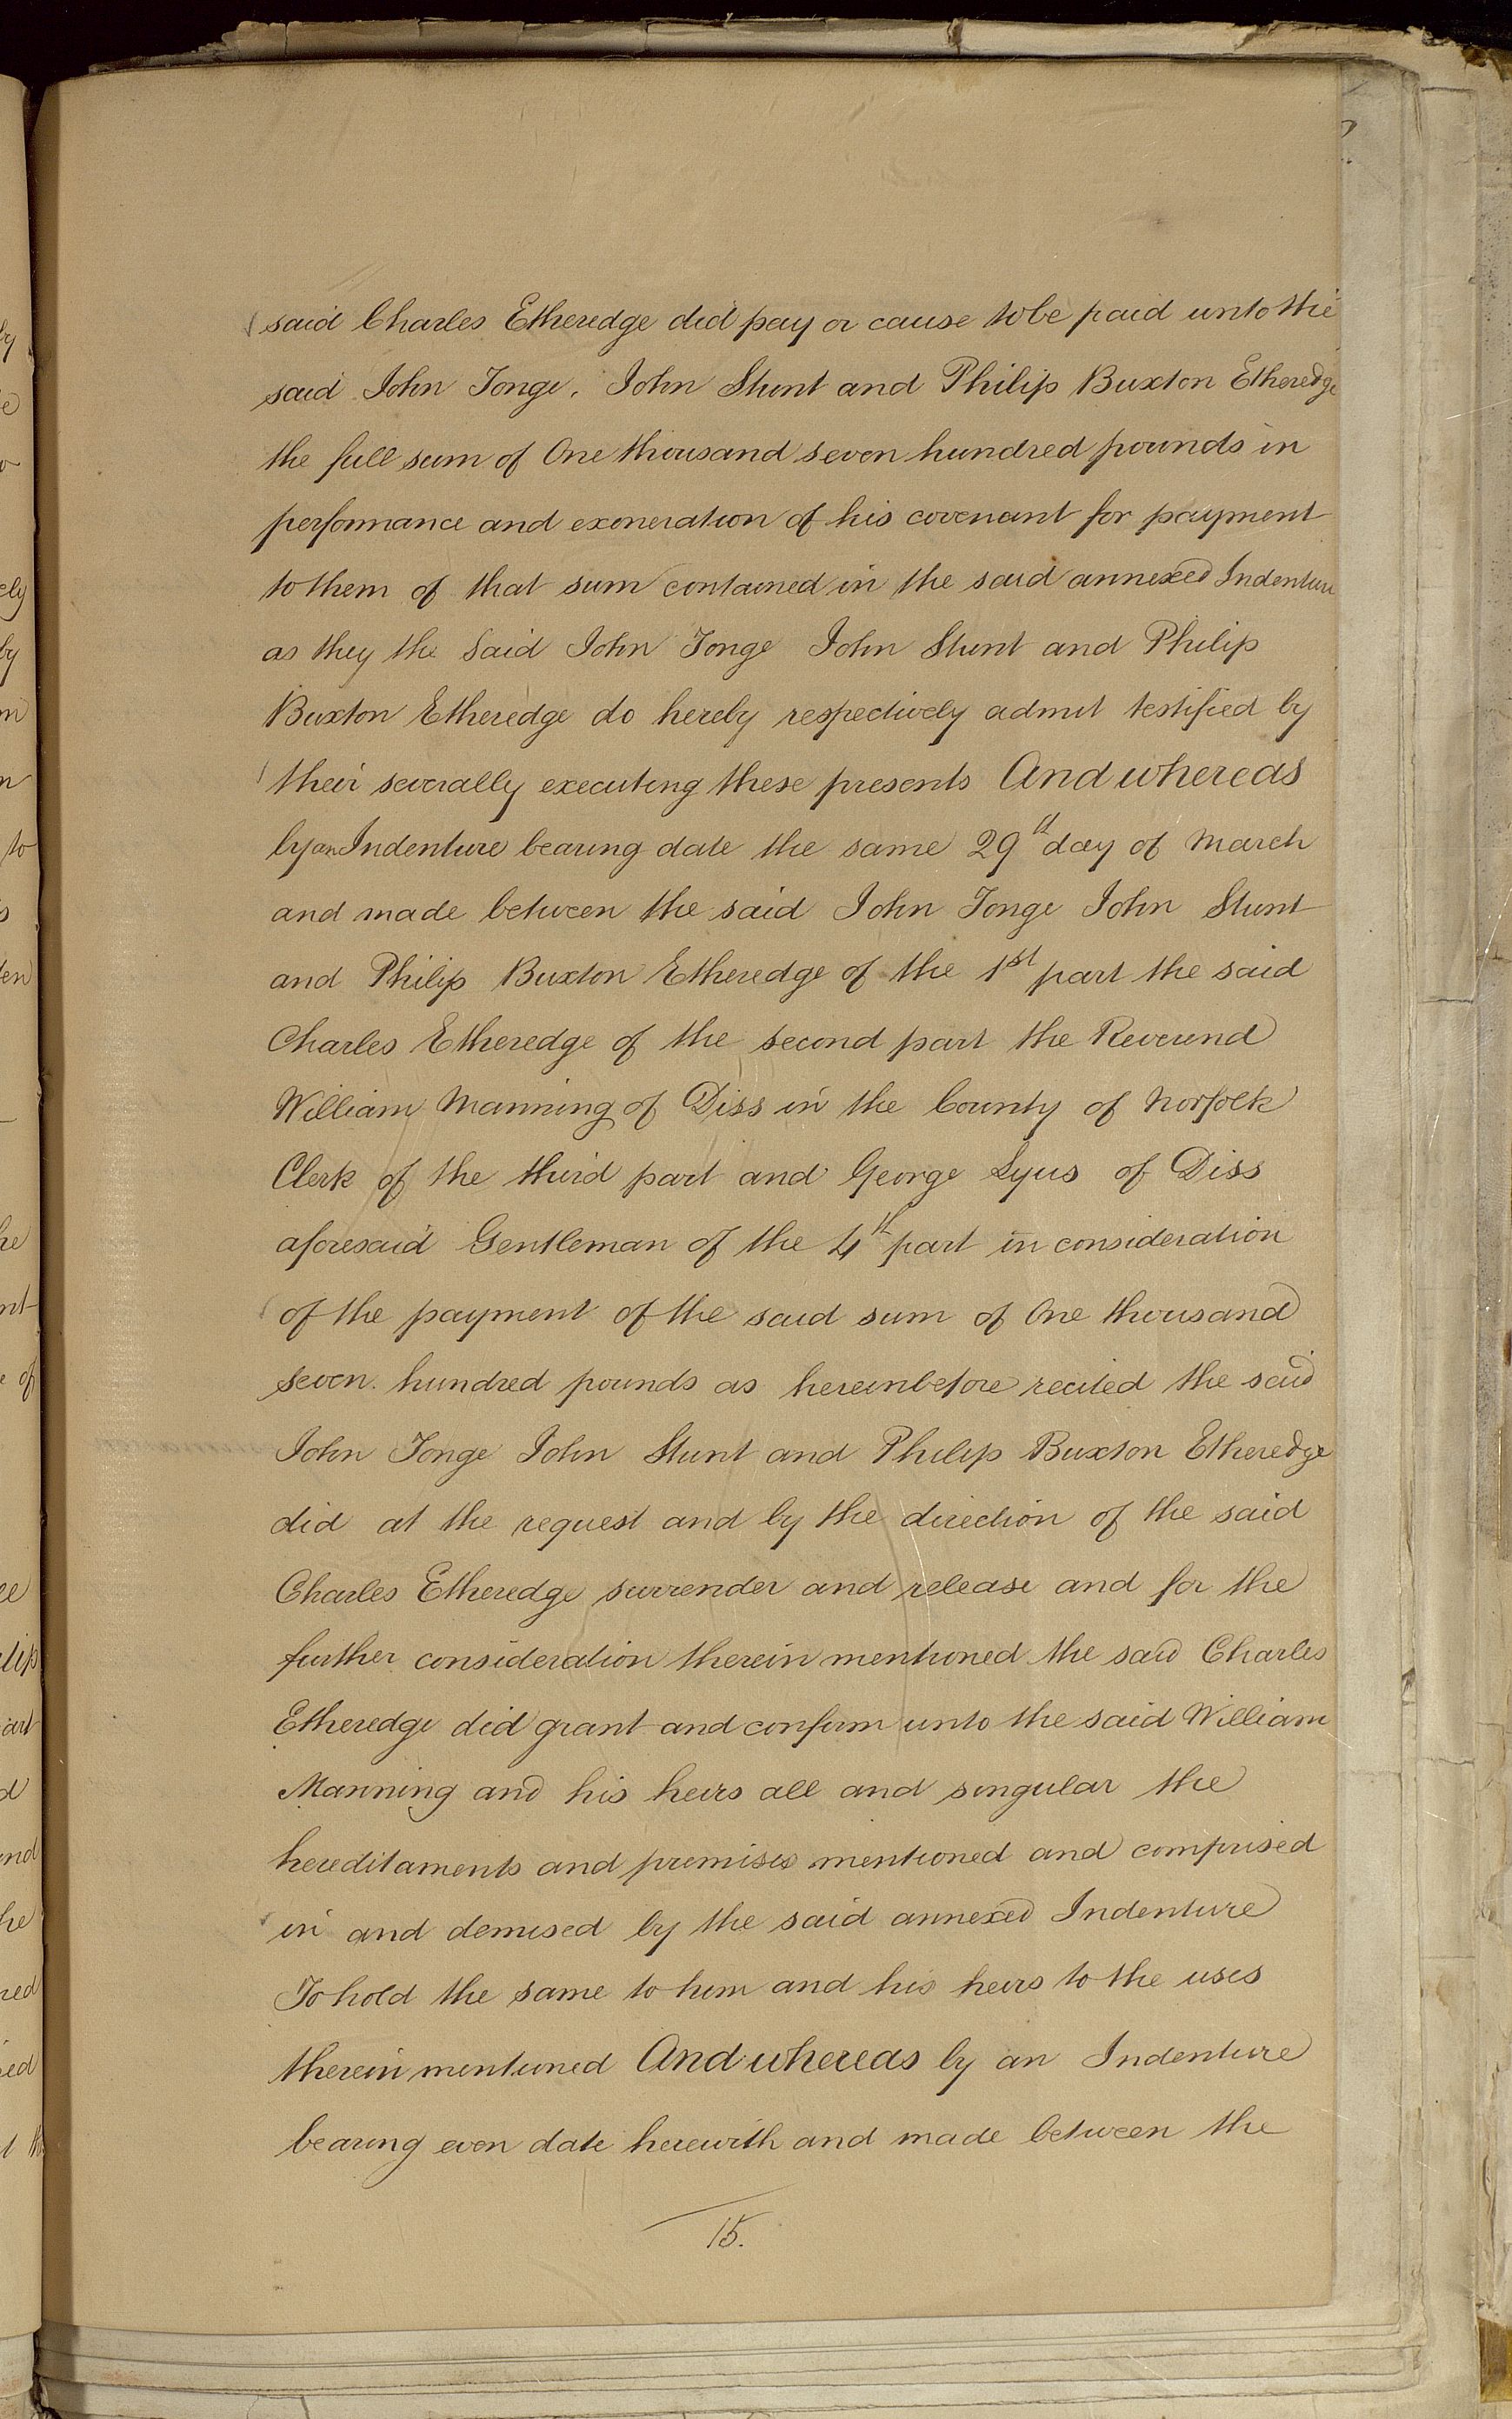 said Charles Etheredge did pay or cause to be paid unto the
said John Tonge. John Stunt and Philip Buxton Etheredge
the full sum of One thousand seven hundred pounds in
performance and exoneration of his covenant for payment
to them of that sum contained in the said annexed Indenture
as they the Said John Tonge John Stunt and Philip
Buxton Etheredge do hereby respectively admit testified by
their severally executing these presents And whereas
by an Indenture bearing date the same 29th day of March
and made between the said John Tonge John Stunt
and Philip Buxton Etheredge of the 1st part the said
Charles Etheredge of the second part the Reverend
William Manning of Diss in the County of Norfolk
Clerk of the third part and George Lyus of Diss
aforesaid Gentleman of the 4th part in consideration
of the payment of the said sum of One thousand
seven hundred pounds as hereinbefore recited the said
John Tonge John Stunt and Philip Buxton Etheredge
did at the request and by the direction of the said
Charles Etheredge surrender and release and for the
further consideration therein mentioned the said Charles
Etheredge did grant and confirm unto the said William
Manning and his heirs all and singular the
hereditaments and premises mentioned and comprised
in and demised by the said annexed Indenture
To hold the same to him and his heirs to the uses
therein mentioned And whereas by an Indenture
bearing even date herewith and made between the
15.